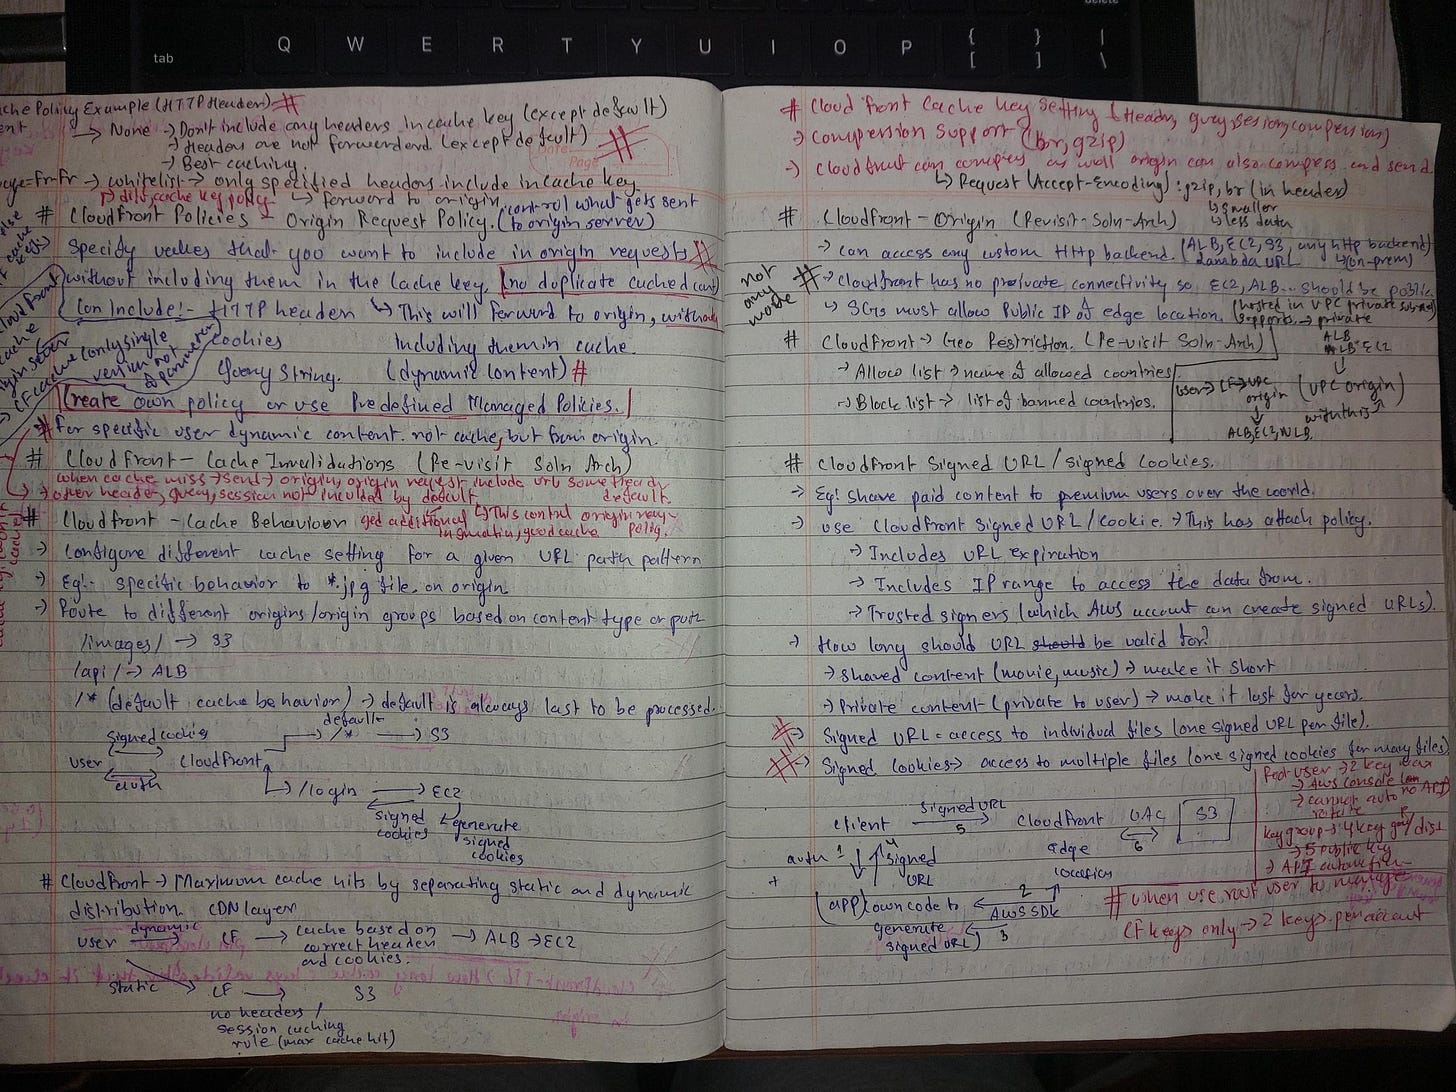 delete
tab Q W E R T Y U I O P { [ } ] | \
Cache Policy Example (HTTP Header) #
→ None → Don't include any headers in cache key (except default)
→ Headers are not forwarderd (except default) #
→ Best caching.
Date
Page
→ whitelist → only specified headers include in cache key.
↳ forward to origin.
# CloudFront Policies - Origin Request Policy. (to origin server)
control what gets sent
Specify values that you want to include in origin requests #
without including them in the cache key. [no duplicate cached cont]
Can Include:- HTTP header ↳ This will forward to origin, without
Cookies Including them in cache.
Query String. (dynamic content) #
Create own policy or use Predefined Managed Policies.
* For specific user dynamic content. not cache, but from origin.
# CloudFront - Cache Invalidations (Re-visit Soln Arch)
when cache miss → send → origin, origin request include url some
→ other header, query, session not included by default default.
# Cloudfront - Cache Behaviour ↳ This control origin
good cache
→ Configure different cache setting for a given URL path pattern
→ Eg:- specific behavior to *.jpg file. on origin
→ Route to different origins/origin groups based on content type or path
/images/ → S3
/api/ → ALB
/* (default cache behavior) → default is always last to be processed.
Signed cookies
default
→ /* → S3
user CloudFront
auth
→ /login → EC2
Signed cookies
generate signed cookies
# CloudFront → Maximum cache hits by separating static and dynamic
distribution. CDN layer
user dynamic → CF → cache based on → ALB → EC2
correct header
and cookies.
Static → CF → S3
no headers /
session caching
rule (max cache hit)
# Cloud front Cache key setting (Header, query, session, compression)
→ Compression Support (br, gzip)
→ Cloudfront can compress as well origin can also compress and send
↳ Request (Accept-Encoding): gzip, br (in header)
↳ smaller
↳ less data
# CloudFront - Origin (Revisit-Soln-Arch)
→ can access any custom Http backend. (ALB, EC2, S3, any http backend)
Lambda URL ↳ (on-prem)
not any more
# → Cloudfront has no preivate connectivity so EC2, ALB... should be public
↳ SGs must allow Public IP of edge location. (hosted in VPC private subnet)
supports → private
ALB
EC2
# CloudFront → Geo Restriction. (Re-visit Soln-Arch)
→ Allow list → name of allowed countries
→ Block list → list of banned countries.
user → CF → VPC origin
↓
ALB, EC2, NLB
(VPC origin)
with this
# CloudFront Signed URL / signed Cookies.
→ Eg: share paid content to premium users over the world.
→ use CloudFront Signed URL / Cookie. → This has attach policy.
→ Includes URL expiration
→ Includes IP range to access the data from.
→ Trusted signers (which AWS account can create signed URLs).
→ How long should URL should be valid for?
→ shared content (movie, music) → make it short
→ Private content (private to user) → make it last for years.
# → Signed URL = access to individual files (one signed URL per file).
# → Signed Cookies → access to multiple files (one signed cookies for many files)
Root user → 2 key max
→ AWS console
→ cannot auto rotate
no API
key group → 4 key group/dist
→ 5 public key
→ API
Client Signed URL 5 → CloudFront OAC S3
6
Edge location
auth 1 ↓ ↑ 4 Signed URL
+
(app) own code to generate signed URL)
2
AWS SDK
3
# when use root user to manage
CF keys only → 2 keys per account